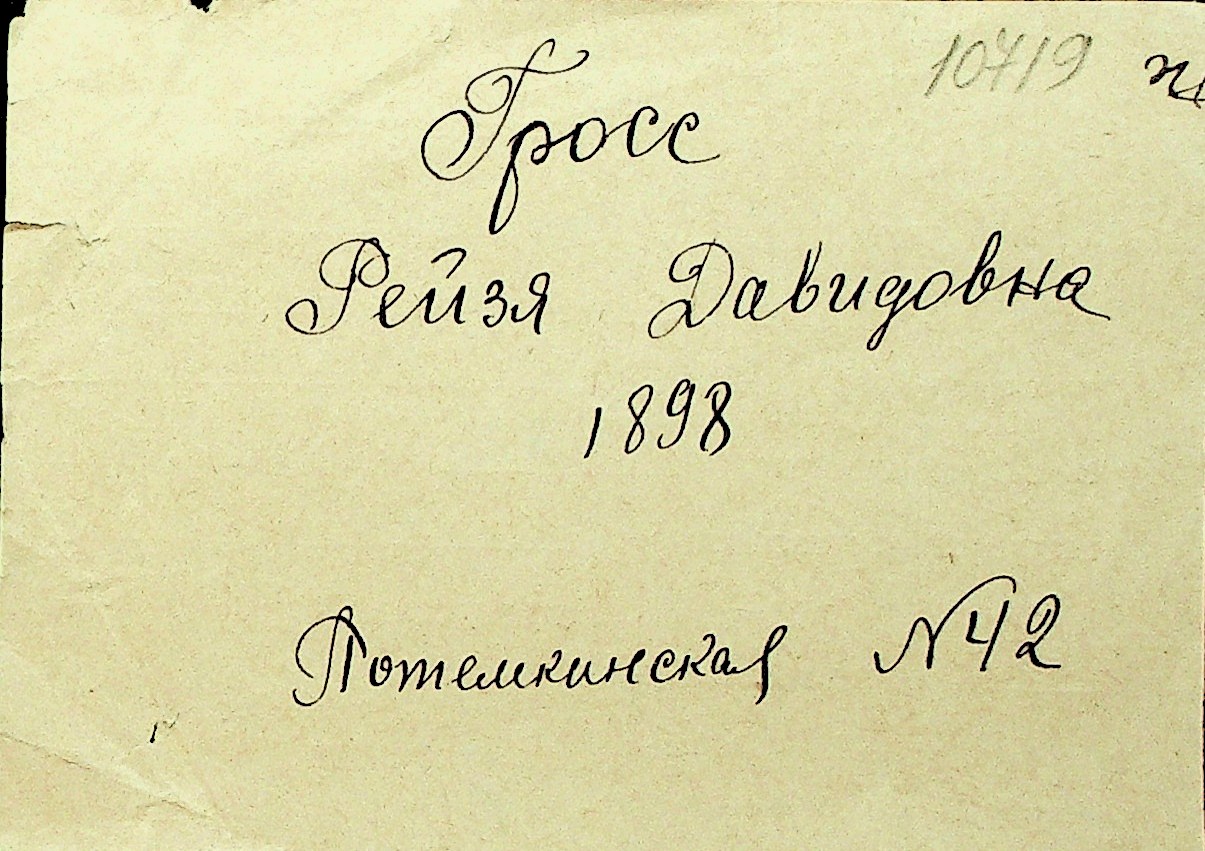 10719
Гросс
Рейзя Давидовна
1898
Потемкинская N42